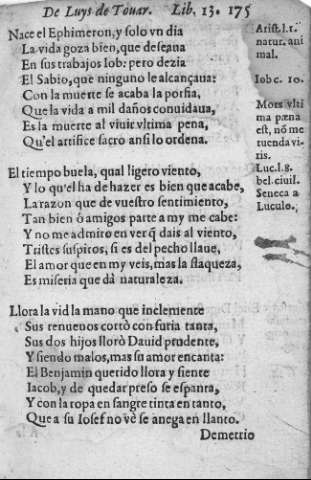 De Luys de Touar. Lib. 13. 175
Nace el Ephimeron, y solo vn dia
La vida goza bien, que deseaua
En sus trabajos Iob: pero dezia
El Sabio, que ninguno le alcançaua:
Con la muerte se acaba la porfia,
Que la vida a mil daños conuidaua,
Es la muerte al viuir vltima pena,
Qu'el artifice sacro ansi lo ordena.
Arist.l.1.
natur. ani
mal.
Iob c. 10.
Mors vlti
ma pæna
est, nõ me
tuenda vi-
ris.
Luc.l.8.
bel. ciuil.
Seneca a
Luculo.
El tiempo buela, qual ligero viento,
Y lo qu'el ha de hazer es bien que acabe,
La razon que de vuestro sentimiento,
Tan bien ô amigos parte a my me cabe:
Y no me admiro en ver q̃ dais al viento,
Tristes suspiros, si es del pecho llaue,
El amor que en my veis, mas la flaqueza,
Es miseria que dà naturaleza.
Llora la vid la mano que inclemente
Sus renueuos cortò con furia tanta,
Sus dos hijos llorò Dauid prudente,
Y siendo malos, mas su amor encanta:
El Benjamin querido llora y siente
Iacob, y de quedar preso se espanta,
Y con la ropa en sangre tinta en tanto,
Que a su Iosef no vè se anega en llanto.
Demetrio